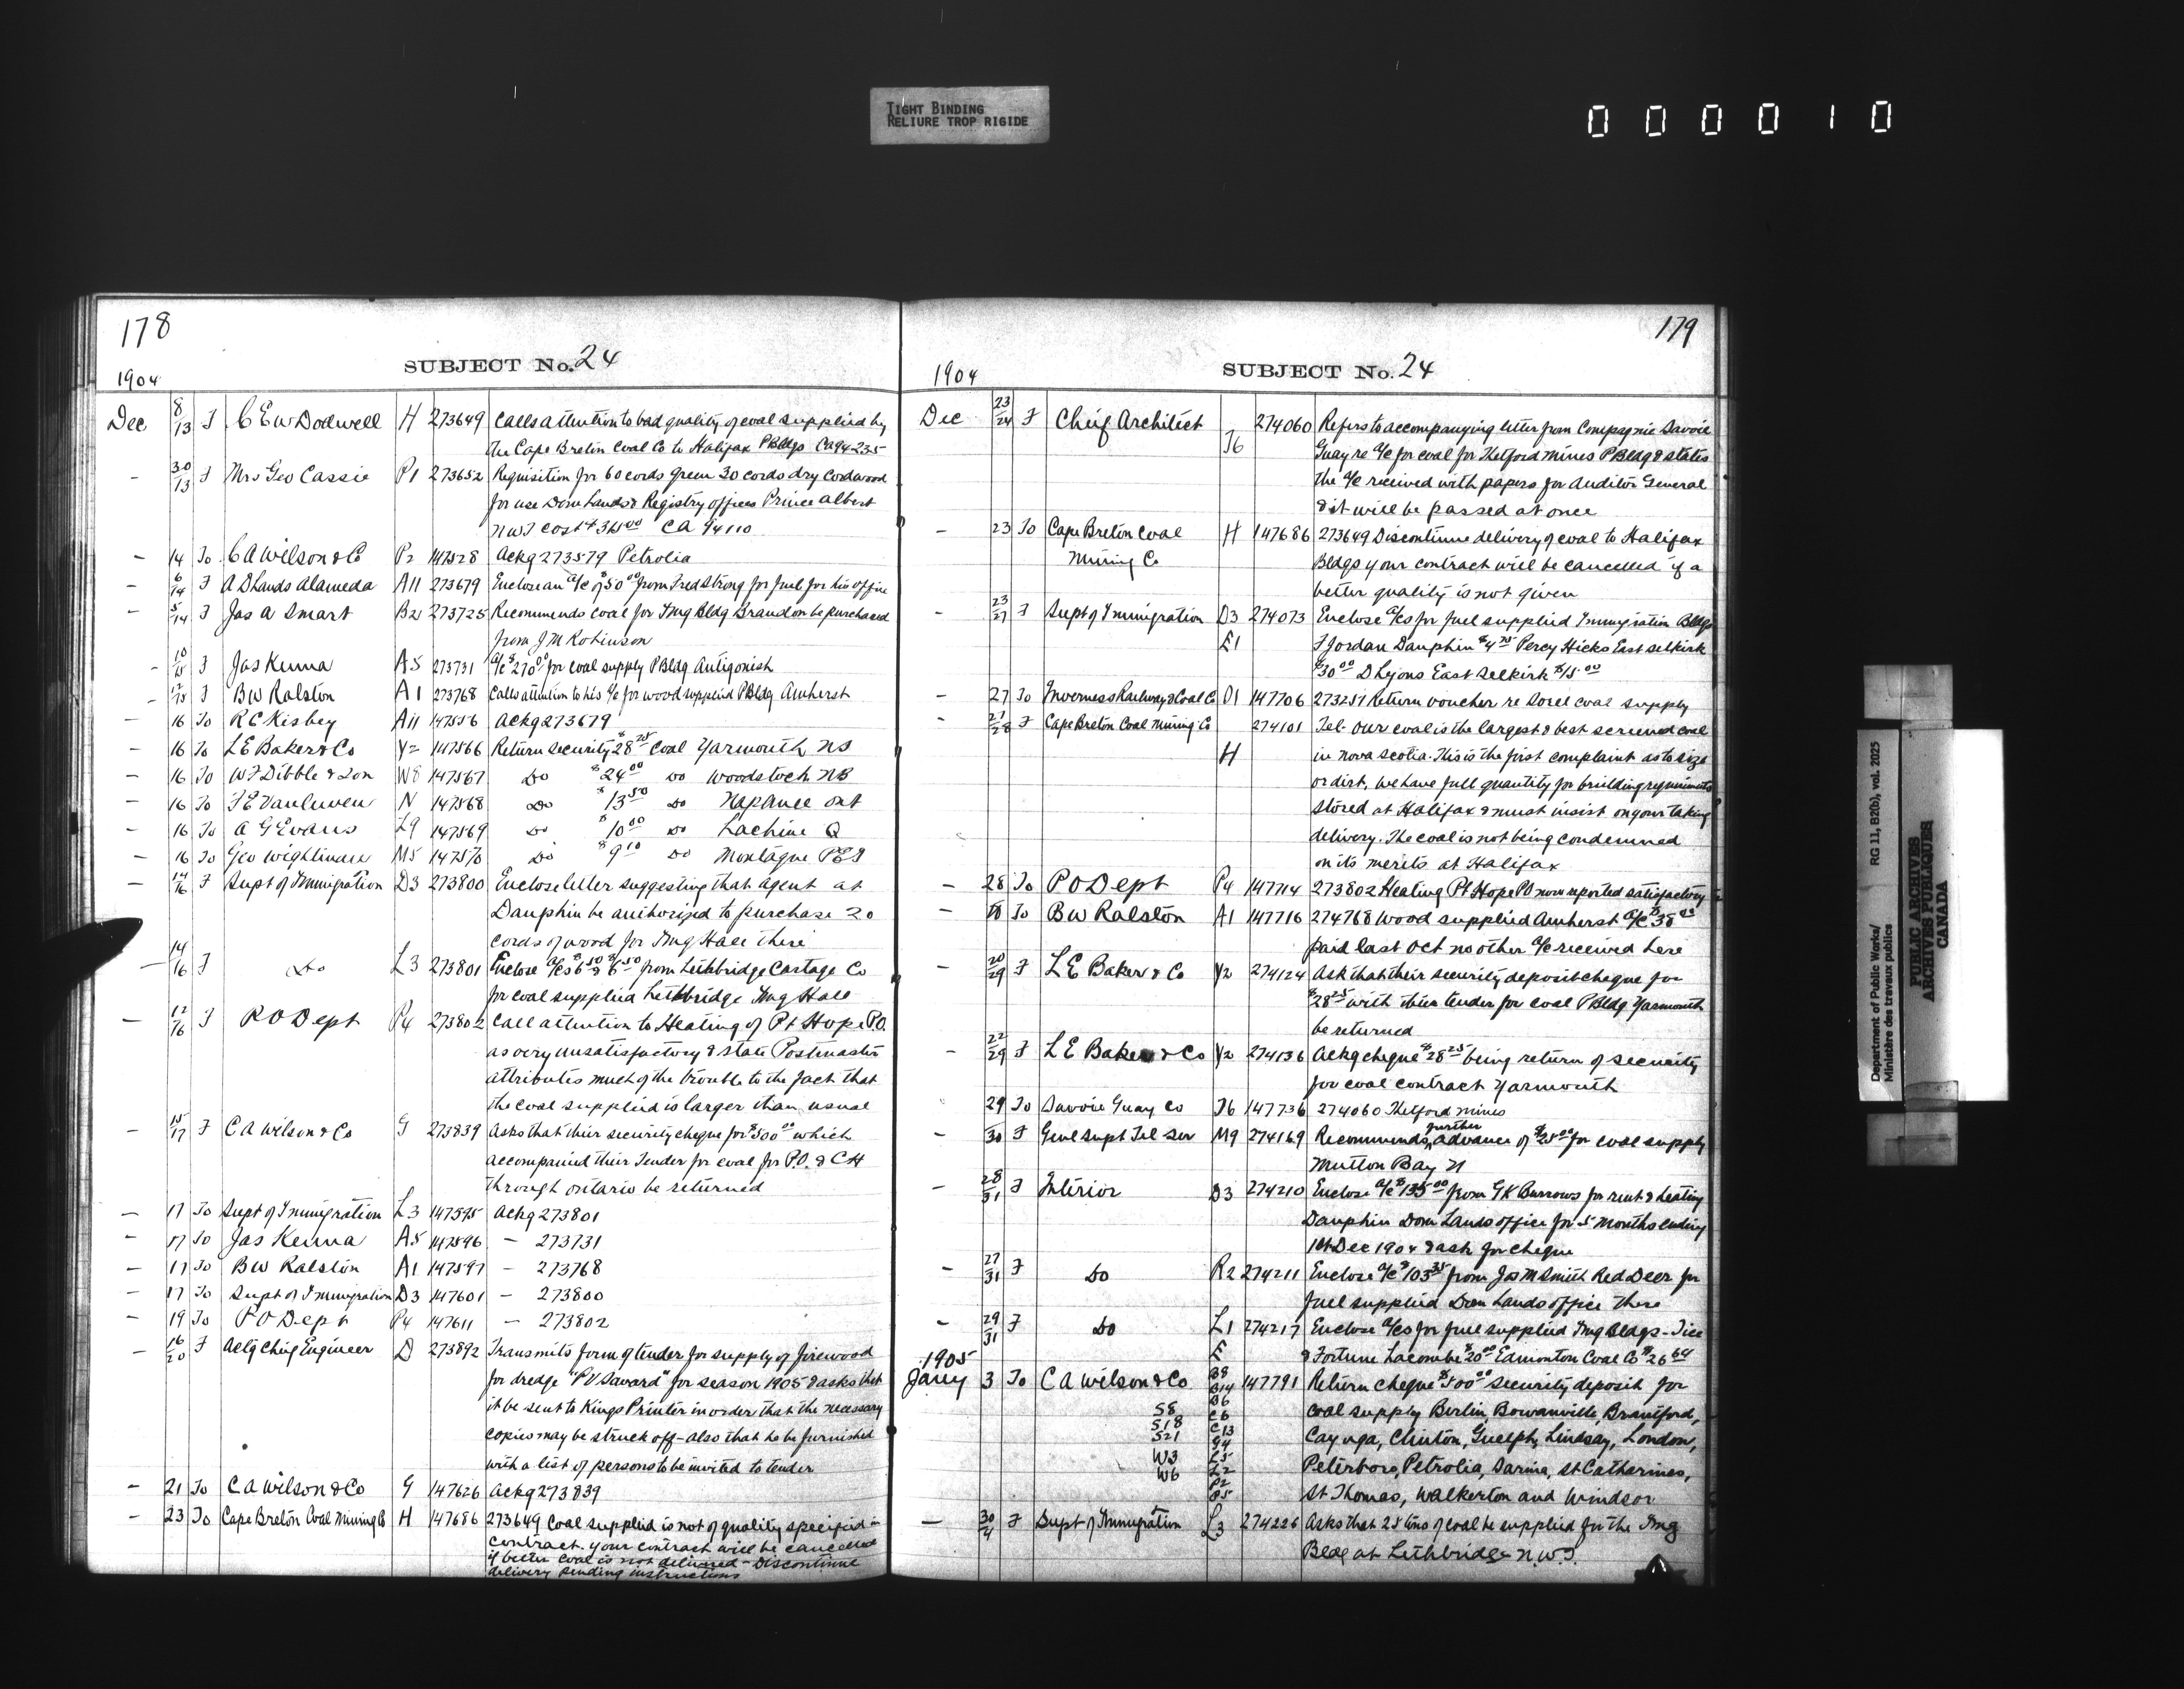 TIGHT BINDING
RELIURE TROP RIGIDE
000010
178
SUBJECT No. 24
1904
Dec 8/13 F C E W Dodwell H 273649 Calls attention to bad quality of coal supplied by
the Cape Breton Coal Co to Halifax P Bldgs CA 94235
- 30/13 F Mrs Geo Cassie P1 273652 Requisition for 60 cords green 30 cords dry cordwood
for use Dom Lands & Registry offices Prince Albert
NWT cost $ 00 CA 94110
- 14 To C A Wilson & Co P2 147528 Ackg 273579 Petrolia
- 6/14 F A D Lands Alameda A11 273679 Enclose an a/c of $50 00 from Fred Strong for fuel for his office
- 5/14 F Jas A Smart B2 273725 Recommends coal for Img Bldg Brandon be purchased
from J M Robinson
- 10/15 F Jas Kenna A5 273731 a/c $270 00 for coal supply P Bldg Antigonish
- 12/15 F B W Ralston A1 273768 Calls attention to his a/c for wood supplied P Bldg Amherst
- 16 To R C Kisbey A11 147556 Ackg 273679
- 16 To L E Baker & Co Y2 147566 Return security $28 25 coal Yarmouth NS
- 16 To W F Dibble & Son W8 147567 Do $24 00 Do Woodstock NB
- 16 To F E Vanluven N 147568 Do $13 50 Do Napanee Ont
- 16 To A G Evans L9 147569 Do $10 00 Do Lachine Q
- 16 To Geo Wightman M5 147570 Do $9 10 Do Montague PEI
- 14/16 F Supt of Immigration D3 273800 Enclose letter suggesting that agent at
Dauphin be authorized to purchase 20
cords of wood for Img Hall there
- 14/16 F Do L3 273801 Enclose a/cs $6 50 & $6 50 from Lethbridge Cartage Co
for coal supplied Lethbridge Img Hall
- 12/16 F P O Dept P4 273802 Call attention to Heating of Pt Hope P.O.
as very unsatisfactory & state Postmaster
attributes much of the trouble to the fact that
the coal supplied is larger than usual
- 15/17 F C A Wilson & Co G 273839 Asks that their security cheque for $500 00 which
accompanied their Tender for coal for P.O. & C H
through Ontario be returned
- 17 To Supt of Immigration L3 147595 Ackg 273801
- 17 To Jas Kenna A5 147596 - 273731
- 17 To B W Ralston A1 147597 - 273768
- 17 To Supt of Immigration D3 147601 - 273800
- 19 To P O Dept P4 147611 - 273802
- 16/20 F Actg Chief Engineer D 273892 Transmits form of tender for supply of firewood
for dredge "P V Savard" for season 1905 & asks that
it be sent to Kings Printer in order that the necessary
copies may be struck off - also that he be furnished
with a list of persons to be invited to tender
- 21 To C A Wilson & Co G 147626 Ackg 273839
- 23 To Cape Breton Coal Mining Co H 147686 273649 Coal supplied is not of quality specified in
contract. Your contract will be cancelled
if better coal is not delivered - Discontinue
delivery pending instructions
179
SUBJECT No. 24
1904
Dec 23/24 F Chief Architect 274060 Refers to accompanying letter from Compagnie Savoie
T6 Guay re a/c for coal for Thetford Mines P Bldg & states
the a/c received with papers for Auditor General
& it will be passed at once
- 23 To Cape Breton Coal H 147686 273649 Discontinue delivery of coal to Halifax
Mining Co Bldgs your contract will be cancelled if a
better quality is not given
- 23/27 F Supt of Immigration D3 274073 Enclose a/cs for fuel supplied Immigration Bldgs
E1 F Jordan Dauphin $4 75 Percy Hicks East Selkirk
$30 00 D Lyons East Selkirk $15.00
- 27 To Inverness Railway & Coal Co O1 147706 273251 Return voucher re Sorel coal supply
- 27/28 F Cape Breton Coal Mining Co 274101 Tel. Our coal is the largest & best screened coal
H in Nova Scotia. This is the first complaint as to size
or dirt, we have full quantity for building requirements
stored at Halifax & must insist on your taking
delivery. The coal is not being condemned
on its merits at Halifax
- 28 To P O Dept P4 147714 273802 Heating Pt Hope PO now reported satisfactory
- To B W Ralston A1 147716 274768 Wood supplied Amherst a/c $38 00
paid last Oct no other a/c received here
- 20/29 F L E Baker & Co Y2 274124 Ask that their security deposit cheque for
$28 25 with their tender for coal P Bldg Yarmouth
be returned
- 22/29 F L E Baker & Co Y2 274136 Ackg cheque $28 25 being return of security
for coal contract Yarmouth
29 To Savoie Guay Co T6 147736 274060 Thetford Mines
- 30 F Genl Supt Tel Ser M9 274169 Recommends further advance of $25 00 for coal supply
Mutton Bay
- 28/31 F Interior D3 274210 Enclose a/c $135 00 from G K Burrows for rent & heating
Dauphin Dom Lands office for 5 months ending
1st Dec 1904 & ask for cheque
- 27/31 F Do R2 274211 Enclose a/c $103 35 from Jas M Smith Red Deer for
fuel supplied Dom Lands office there
- 29/31 F Do L1 274217 Enclose a/cs for fuel supplied Img Bldgs - Tice
E & Fortune Lacombe $20 00 Edmonton Coal Co $26 64
1905
Jany 3 To C A Wilson & Co B8 147791 Return cheque $500 00 security deposit for
B14
B6
S8 C6 coal supply Berlin, Bowmanville, Brantford,
S18 C13
S21 G4 Cayuga, Clinton, Guelph, Lindsay, London,
W3 L5
W6 L2 Peterboro, Petrolia, Sarnia, St Catharines,
P2
P5 St Thomas, Walkerton and Windsor
- 30/4 F Supt of Immigration L3 274226 Asks that 25 tons of coal be supplied for the Img
Bldg at Lethbridge N.W.T.
Department of Public Works/
Ministère des travaux publics
RG 11, B2(b), vol. 2025
PUBLIC ARCHIVES
ARCHIVES PUBLIQUES
CANADA